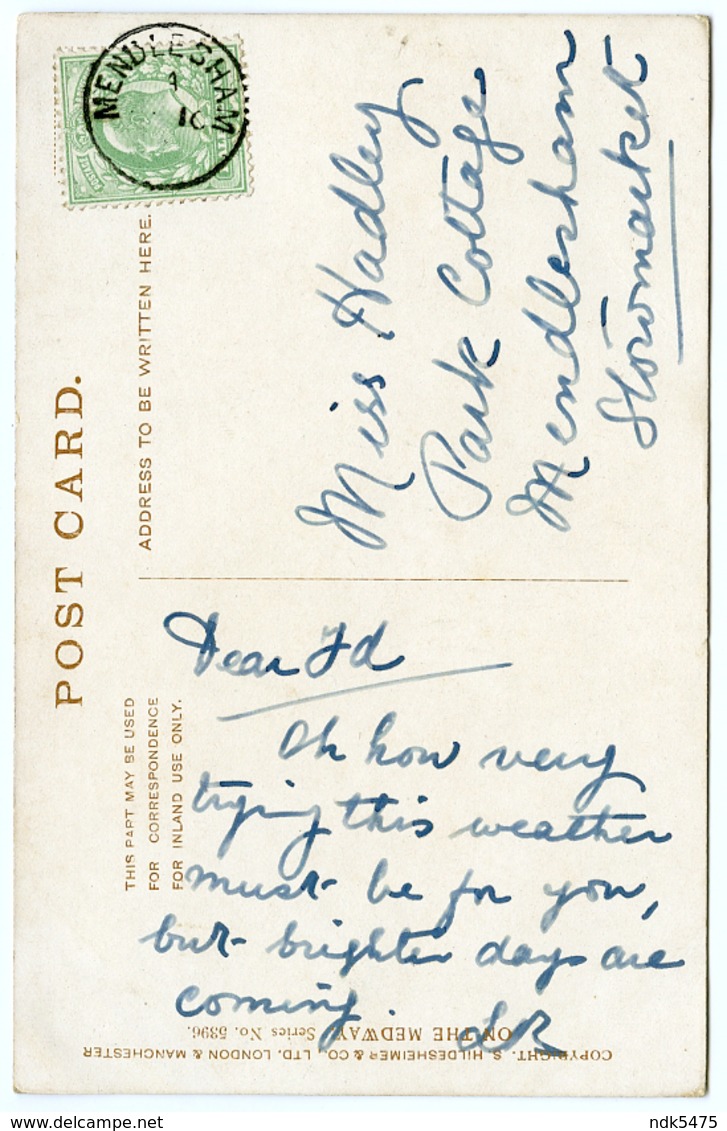 MENDLESHAM
POST CARD.
ADDRESS TO BE WRITTEN HERE.
Miss Hadley
Park Cottage
Mendlesham
Stowmarket
THIS PART MAY BE USED
FOR CORRESPONDENCE
FOR INLAND USE ONLY.
Dear Id
Oh how very
trying this weather
must be for you,
but brighter days are
coming.
ON THE MEDWAY. Series No. 5396.
COPYRIGHT. S. HILDESHEIMER & CO., LTD. LONDON & MANCHESTER
delcampe.net
ndk5475